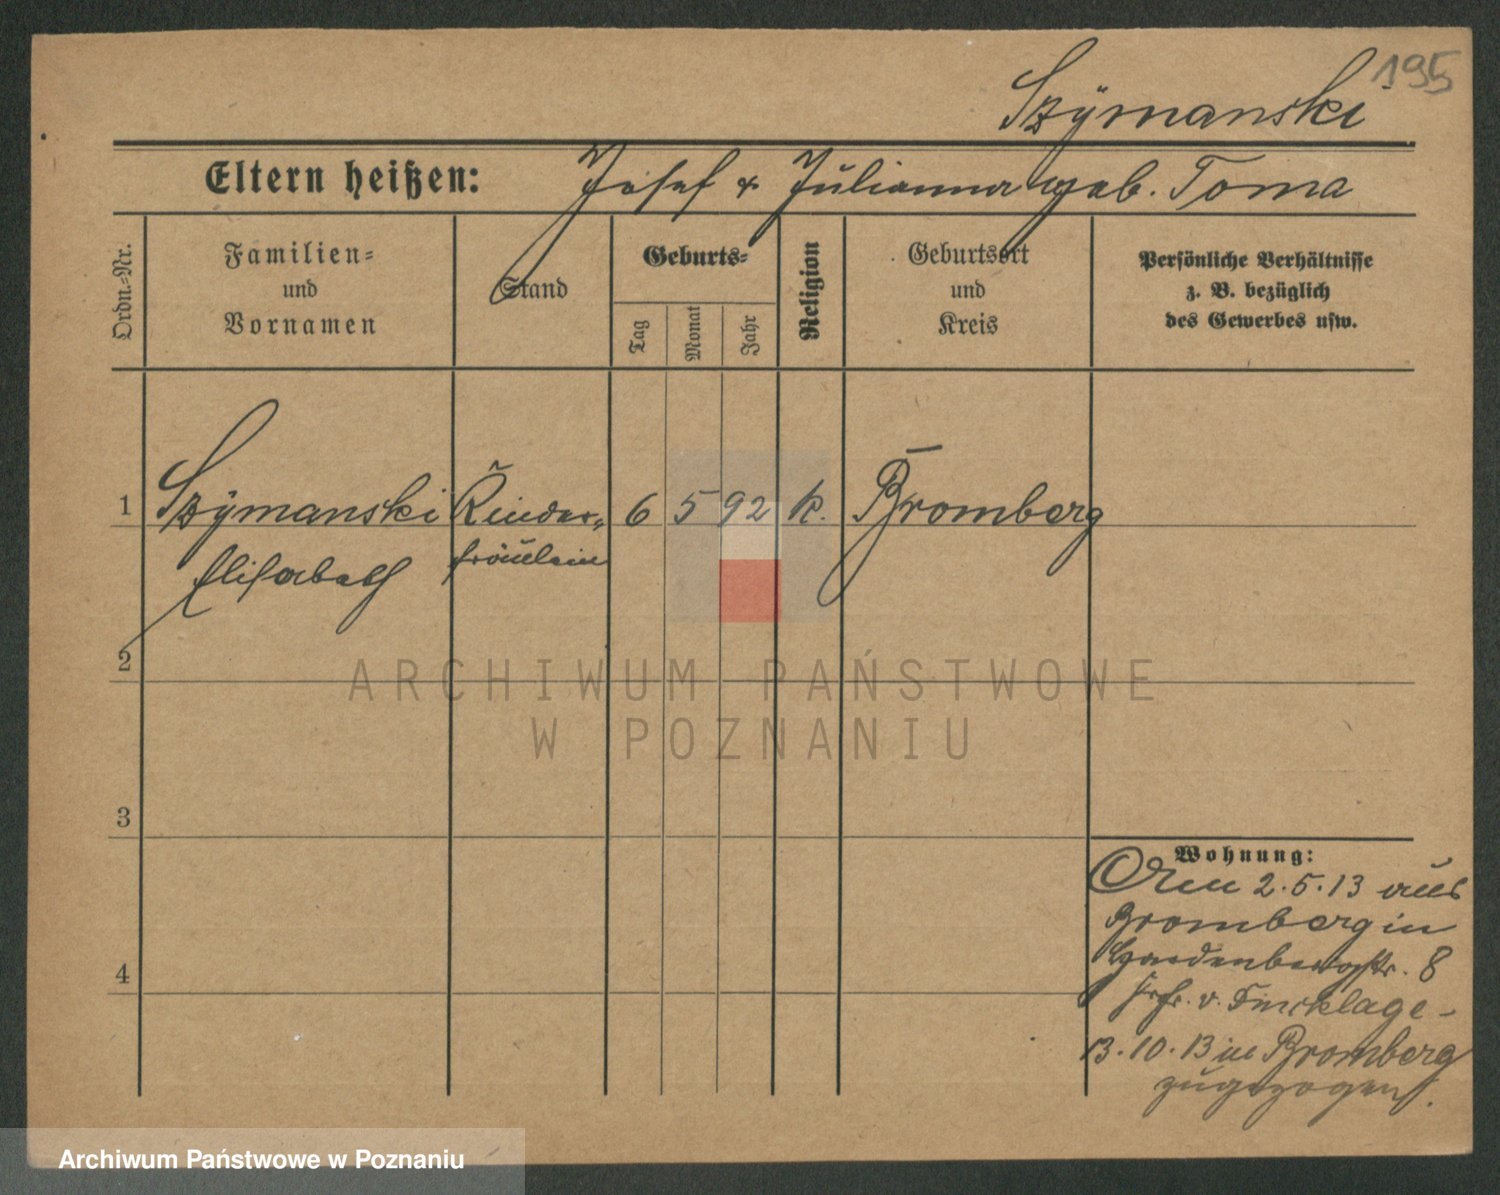 195
Szÿmanski
Eltern heißen: Josef & Julianna geb. Toma
Ordn.-Nr.
Familien- und Vornamen
Stand
Geburts-
Tag
Monat
Jahr
Religion
Geburtsort und Kreis
Persönliche Verhältnisse
z. B. bezüglich
des Gewerbes usw.
1 Szÿmanski Kinder- 6 5 92 k. Bromberg
Elisabeth fräulein
2
3
4
Wohnung:
Am 2.5.13 aus
Bromberg in
Hardenbergstr. 8
Frhr. v. Fincklage -
13.10.13 in Bromberg
zugezogen.
ARCHIWUM PAŃSTWOWE
W POZNANIU
Archiwum Państwowe w Poznaniu